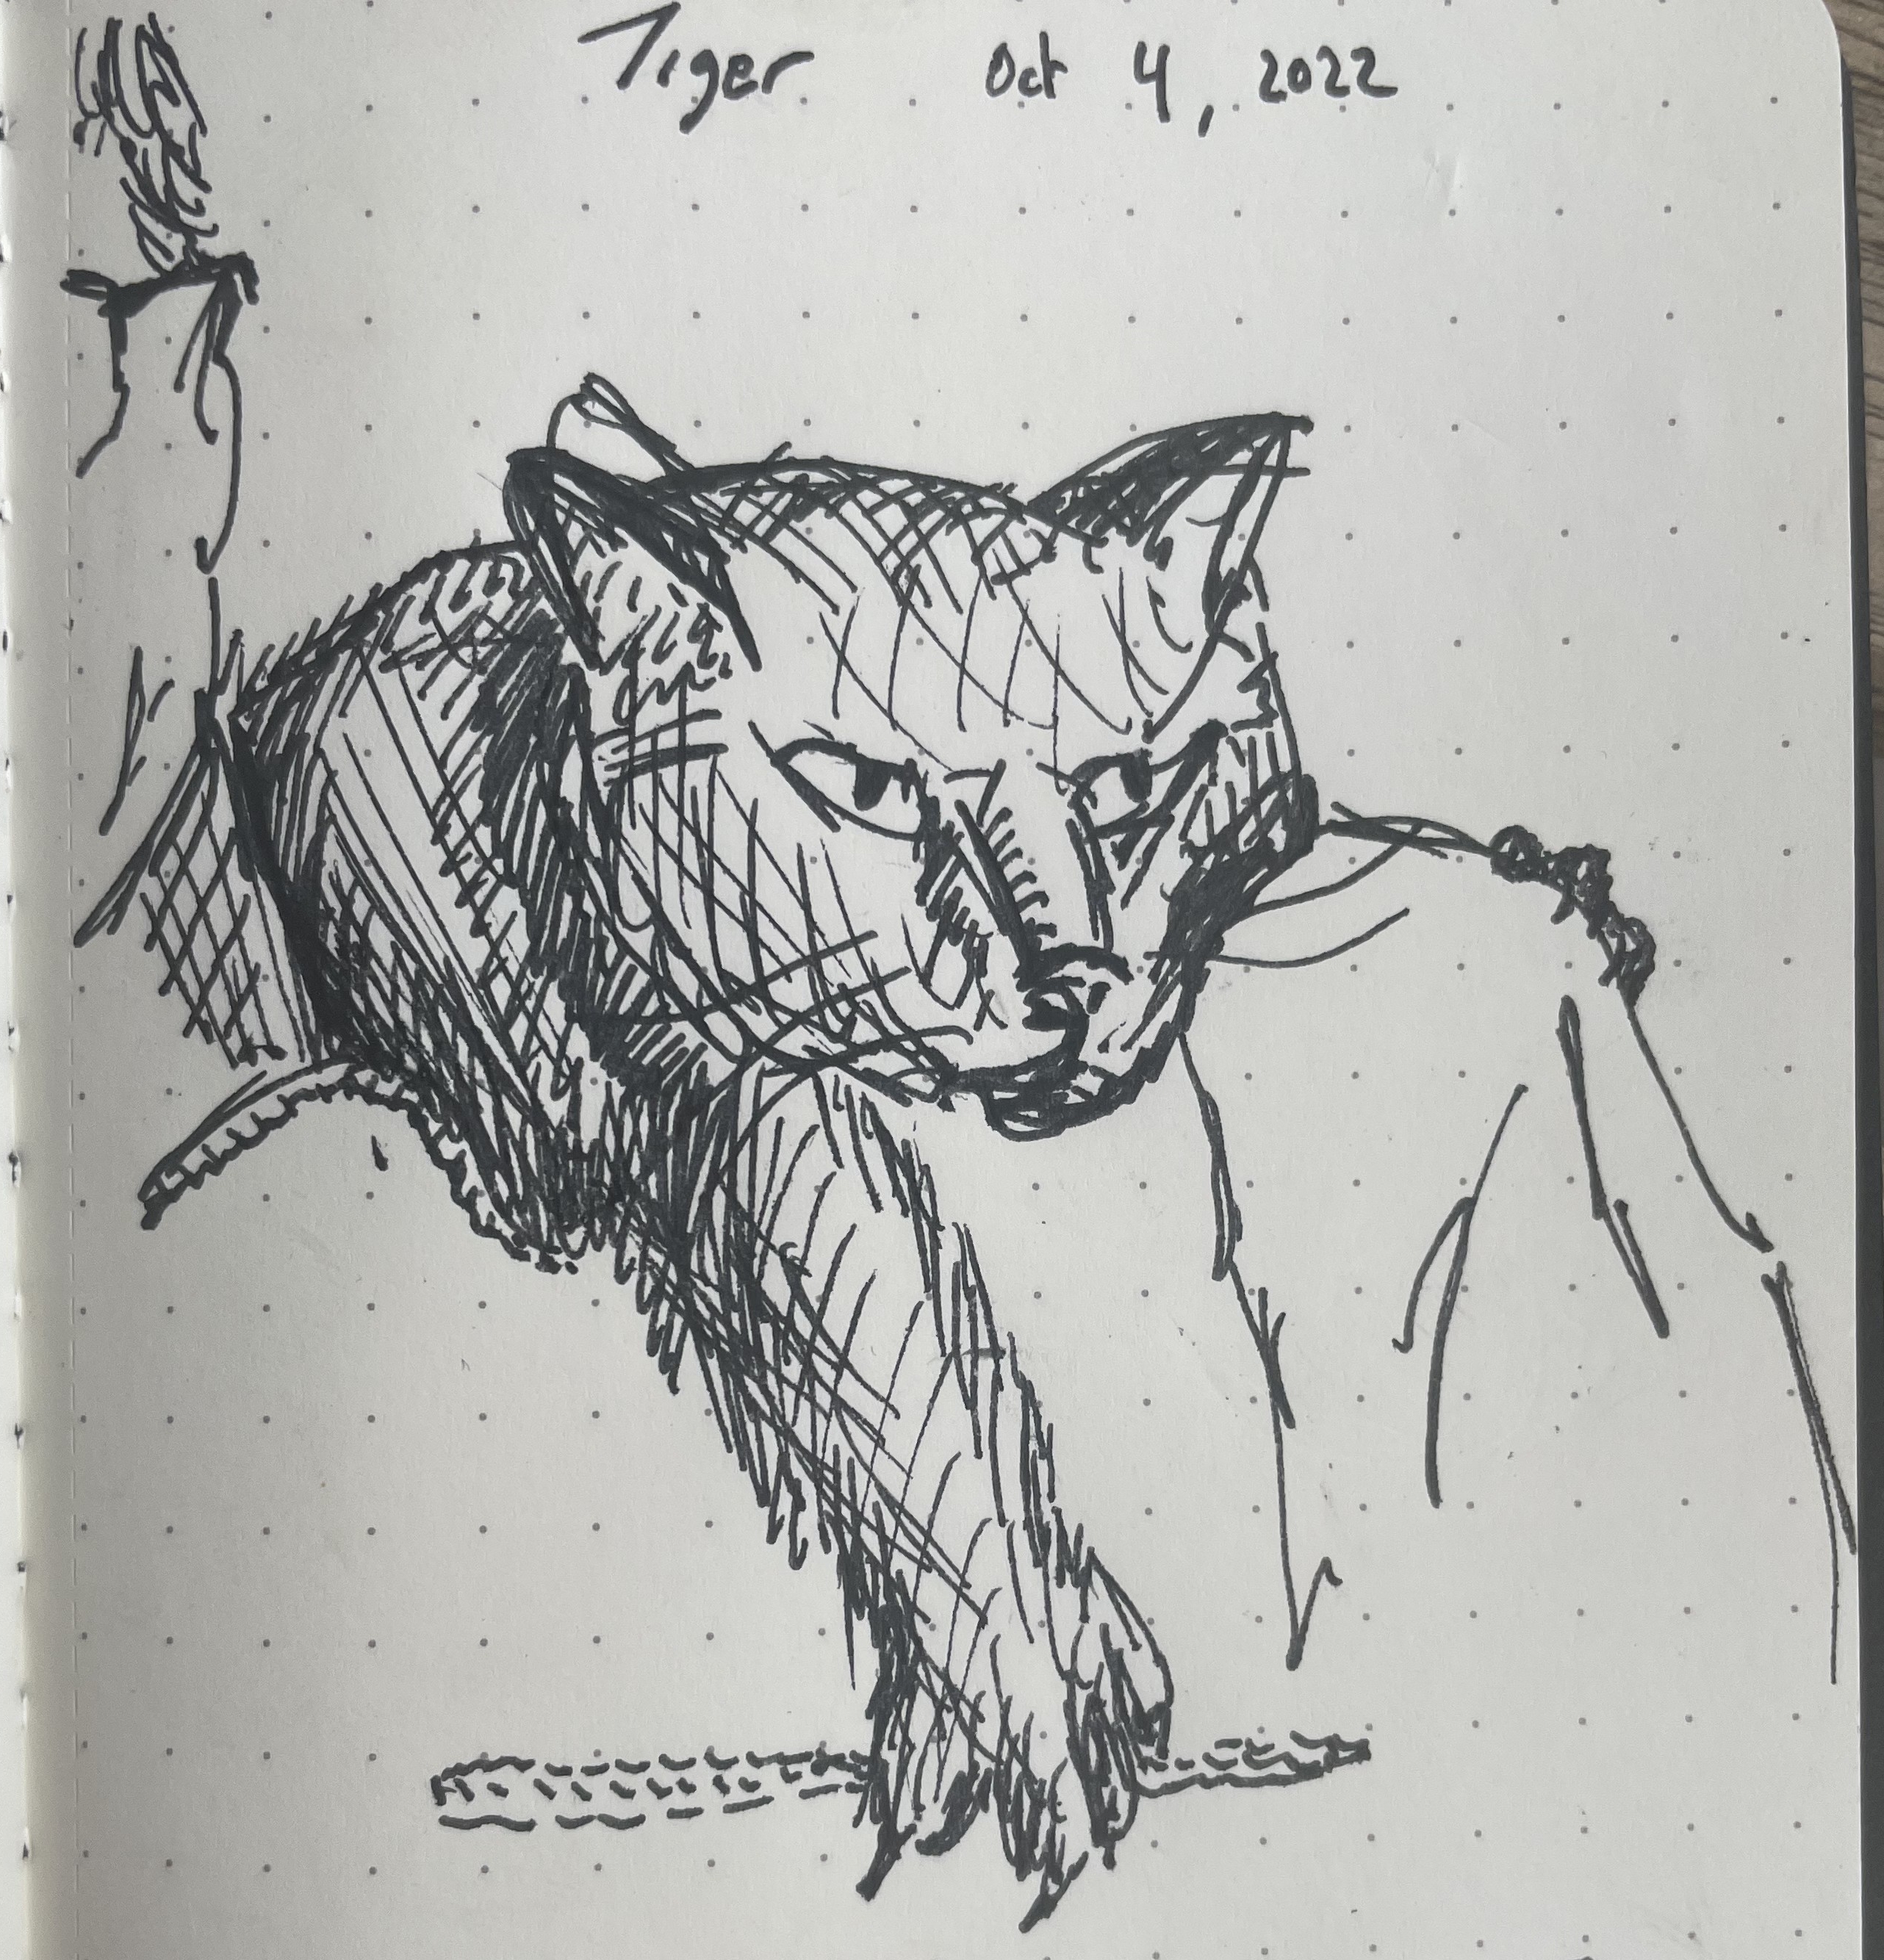 Tiger Oct 4, 2022